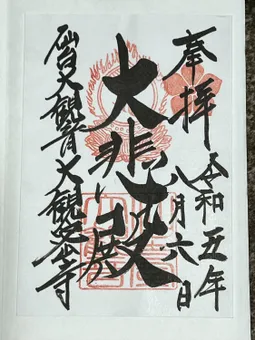 奉拝
令和五年
八月六日
大悲殿
仙台大観音大観密寺